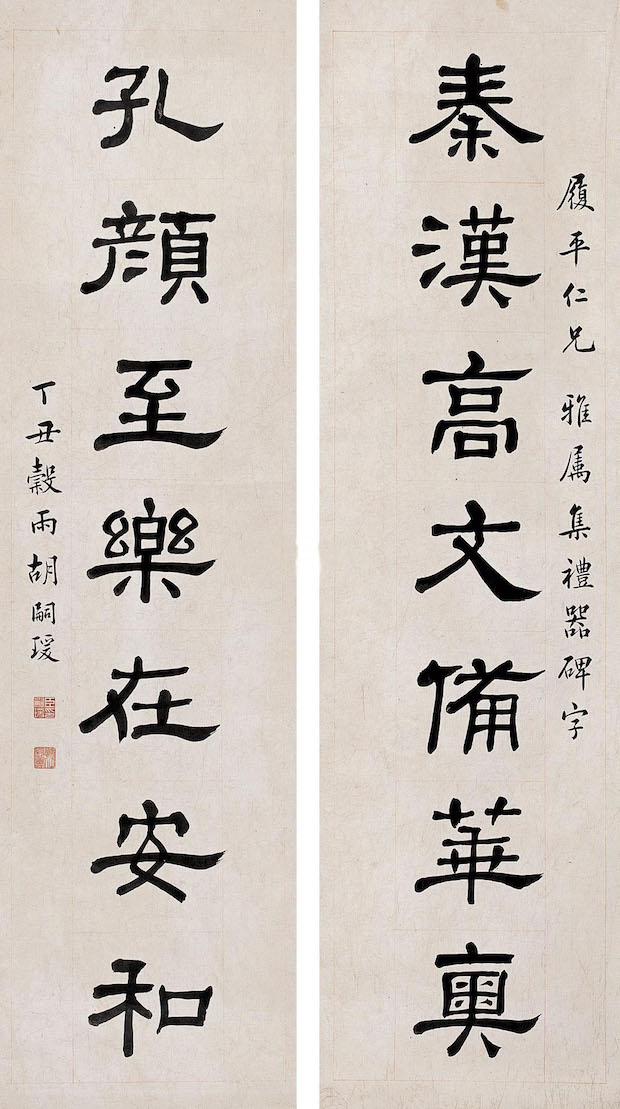 履平仁兄 雅属集禮器碑字
秦漢高文備華奧
孔顏至樂在安和
丁丑穀雨胡嗣瑗